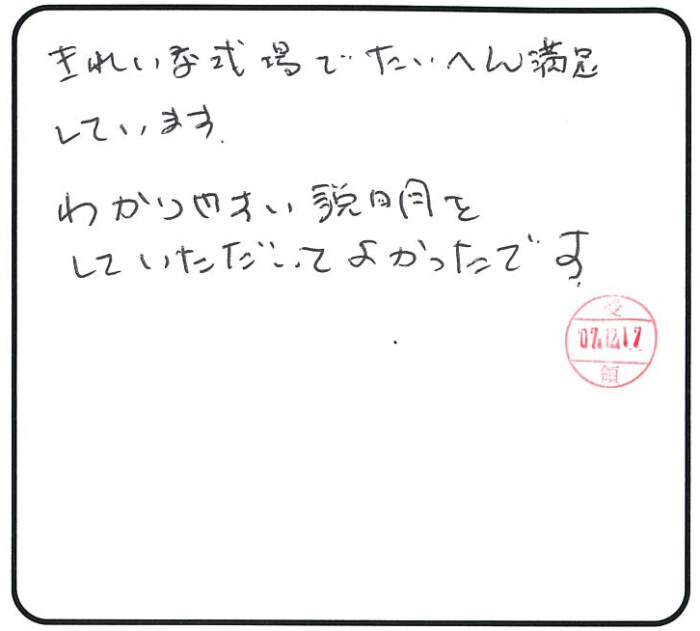 きれいな式場でたいへん満足
しています.
わかりやすい説明を
していただいてよかったです.
受
07.12.17
領